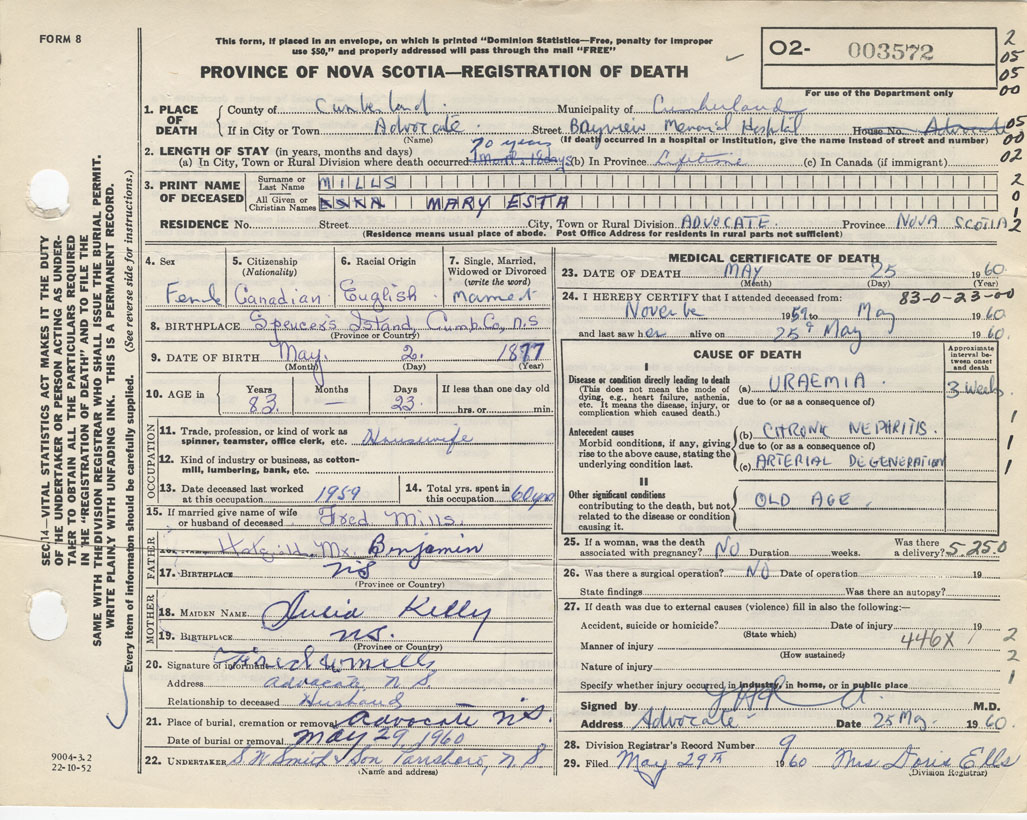 FORM 8
This form, if placed in an envelope, on which is printed "Dominion Statistics—Free, penalty for improper
use $50," and properly addressed will pass through the mail "FREE"
PROVINCE OF NOVA SCOTIA—REGISTRATION OF DEATH
O2- 003572
For use of the Department only
2
05
05
00
1. PLACE OF DEATH
County of Cumberland Municipality of Cumberland
If in City or Town Advocate Street Bayview Memorial Hospital House No. Advocate
(Name) (If death occurred in a hospital or institution, give the name instead of street and number)
05
00
02
2. LENGTH OF STAY (in years, months and days)
70 years
(a) In City, Town or Rural Division where death occurred (b) In Province Lifetime (c) In Canada (if immigrant)
3. PRINT NAME OF DECEASED
Surname or Last Name MILLS
All Given or Christian Names MARY ESTA
2
0
1
2
RESIDENCE No. Street City, Town or Rural Division ADVOCATE Province NOVA SCOTIA
(Residence means usual place of abode. Post Office Address for residents in rural parts not sufficient)
SEC. 14—VITAL STATISTICS ACT MAKES IT THE DUTY
OF THE UNDERTAKER OR PERSON ACTING AS UNDER-
TAKER TO OBTAIN ALL THE PARTICULARS REQUIRED
IN THE "REGISTRATION OF DEATH" AND TO FILE THE
SAME WITH THE DIVISION REGISTRAR WHO SHALL ISSUE THE BURIAL PERMIT.
WRITE PLAINLY WITH UNFADING INK. THIS IS A PERMANENT RECORD.
Every item of informaton should be carefully supplied. (See reverse side for instructions.)
4. Sex
5. Citizenship (Nationality)
6. Racial Origin
7. Single, Married, Widowed or Divorced (write the word)
Female Canadian English Married
8. BIRTHPLACE Spencer's Island, Cumb. Co, N.S
(Province or Country)
9. DATE OF BIRTH May 2. 1877
(Month) (Day) (Year)
10. AGE in
Years Months Days If less than one day old
83 — 23 hrs. or min.
OCCUPATION
11. Trade, profession, or kind of work as
spinner, teamster, office clerk, etc. Housewife
12. Kind of industry or business, as cotton-
mill, lumbering, bank, etc.
13. Date deceased last worked
at this occupation 1959
14. Total yrs. spent in
this occupation 60 yrs
15. If married give name of wife
or husband of deceased Fred Mills
FATHER
Benjamin
17. BIRTHPLACE NS
(Province or Country)
MOTHER
18. MAIDEN NAME Julia Kelly
19. BIRTHPLACE N.S.
(Province or Country)
20. Signature of informant Fred W Mills
Address Advocate N S
Relationship to deceased Husband
21. Place of burial, cremation or removal Advocate N.S.
Date of burial or removal May 29, 1960
22. UNDERTAKER S W Smith & Son Parrsboro, N S
(Name and address)
9004-3.2
22-10-52
MEDICAL CERTIFICATE OF DEATH
23. DATE OF DEATH MAY 25 1960
(Month) (Day) (Year)
24. I HEREBY CERTIFY that I attended deceased from: 83-0-23-00
November 1959 to May 1960
and last saw her alive on 25th May 1960.
CAUSE OF DEATH
Approximate interval between onset and death
I
Disease or condition directly leading to death
(This does not mean the mode of
dying, e.g., heart failure, asthenia,
etc. It means the disease, injury, or
complication which caused death.)
(a) URAEMIA 3 Weeks
due to (or as a consequence of)
Antecedent causes
Morbid conditions, if any, giving
rise to the above cause, stating the
underlying condition last.
(b) CHRONIC NEPHRITIS.
due to (or as a consequence of)
(c) ARTERIAL DEGENERATION
1
1
1
II
Other significant conditions
contributing to the death, but not
related to the disease or condition
causing it.
OLD AGE
25. If a woman, was the death
associated with pregnancy? NO Duration weeks. Was there
a delivery? 5.25.0
26. Was there a surgical operation? NO Date of operation 19
State findings Was there an autopsy?
27. If death was due to external causes (violence) fill in also the following:—
Accident, suicide or homicide? Date of injury 19
(State which)
Manner of injury 446X
(How sustained)
Nature of injury
Specify whether injury occurred in industry, in home, or in public place
1
2
2
1
Signed by M.D.
Address Advocate Date 25 May 1960.
28. Division Registrar's Record Number 9
29. Filed May 29th 1960 Mrs Doris Ells
(Division Registrar)